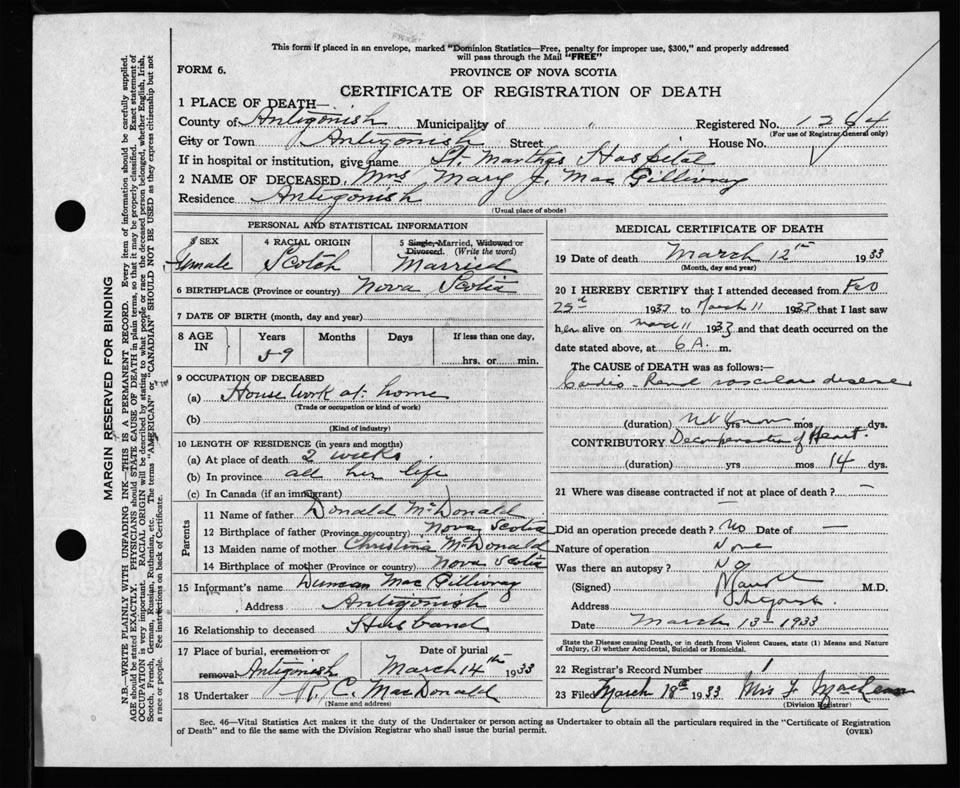 This form if placed in an envelope, marked "Dominion Statistics—Free, penalty for improper use, $300," and properly addressed
will pass through the Mail "FREE"
FORM 6.
PROVINCE OF NOVA SCOTIA
CERTIFICATE OF REGISTRATION OF DEATH
1 PLACE OF DEATH—
County of Antigonish Municipality of " Registered No. 1264
(For use of Registrar General only)
City or Town Antigonish Street House No.
If in hospital or institution, give name St. Marthas Hospital
2 NAME OF DECEASED Mrs Mary J. MacGillivray
Residence Antigonish
(Usual place of abode)
PERSONAL AND STATISTICAL INFORMATION
3 SEX 4 RACIAL ORIGIN 5 Single, Married, Widowed or
Divorced. (Write the word)
Female Scotch Married
6 BIRTHPLACE (Province or country) Nova Scotia
7 DATE OF BIRTH (month, day and year)
8 AGE IN Years Months Days If less than one day,
59 hrs. or min.
9 OCCUPATION OF DECEASED
(a) House work at home
(Trade or occupation or kind of work)
(b)
(Kind of industry)
10 LENGTH OF RESIDENCE (in years and months)
(a) At place of death 2 weeks
(b) In province all her life
(c) In Canada (if an immigrant)
Parents
11 Name of father Donald McDonald
12 Birthplace of father (Province or country) Nova Scotia
13 Maiden name of mother Christina McDonald
14 Birthplace of mother (Province or country) Nova Scotia
15 Informant's name Duncan MacGillivray
Address Antigonish
16 Relationship to deceased Husband
17 Place of burial, cremation or Date of burial
removal Antigonish March 14th 1933
18 Undertaker C. MacDonald
(Name and address)
MEDICAL CERTIFICATE OF DEATH
19 Date of death March 12th 1933
(Month, day and year)
20 I HEREBY CERTIFY that I attended deceased from Feb
25th 1933 to March 11 1933 that I last saw
her alive on March 11 1933 and that death occurred on
date stated above, at 6 A. m.
The CAUSE OF DEATH was as follows:
Cardio-Renal vascular disease
(duration) unknown mos dys.
CONTRIBUTORY Decompensation of Heart.
(duration) yrs mos 14 dys.
21 Where was disease contracted if not at place of death? —
—
Did an operation precede death? No Date of —
Nature of operation None
Was there an autopsy? No
(Signed) M.D.
Address
Date March 13-1933
State the Disease causing Death, or in death from Violent Causes, state (1) Means and Nature
of Injury, (2) whether Accidental, Suicidal or Homicidal.
22 Registrar's Record Number 1
23 Filed March 18th 1933 Mrs F. MacLean
(Division Registrar)
Sec. 46—Vital Statistics Act makes it the duty of the Undertaker or person acting as Undertaker to obtain all the particulars required in the "Certificate of Registration
of Death" and to file the same with the Division Registrar who shall issue the burial permit.
(OVER)
MARGIN RESERVED FOR BINDING
N.B.—WRITE PLAINLY WITH UNFADING INK—THIS IS A PERMANENT RECORD. Every item of information should be carefully supplied.
AGE should be stated EXACTLY. PHYSICIANS should STATE CAUSE OF DEATH in plain terms, so that it may be properly classified. Exact statement of
OCCUPATION is very important. RACIAL ORIGIN will be described by stating to what people or race the deceased person belonged, whether English, Irish,
Scotch, French, German, Russian, Ruthenian, etc. The terms "AMERICAN" or "CANADIAN" SHOULD NOT BE USED as they express citizenship but not
a race or people. See instructions on back of Certificate.